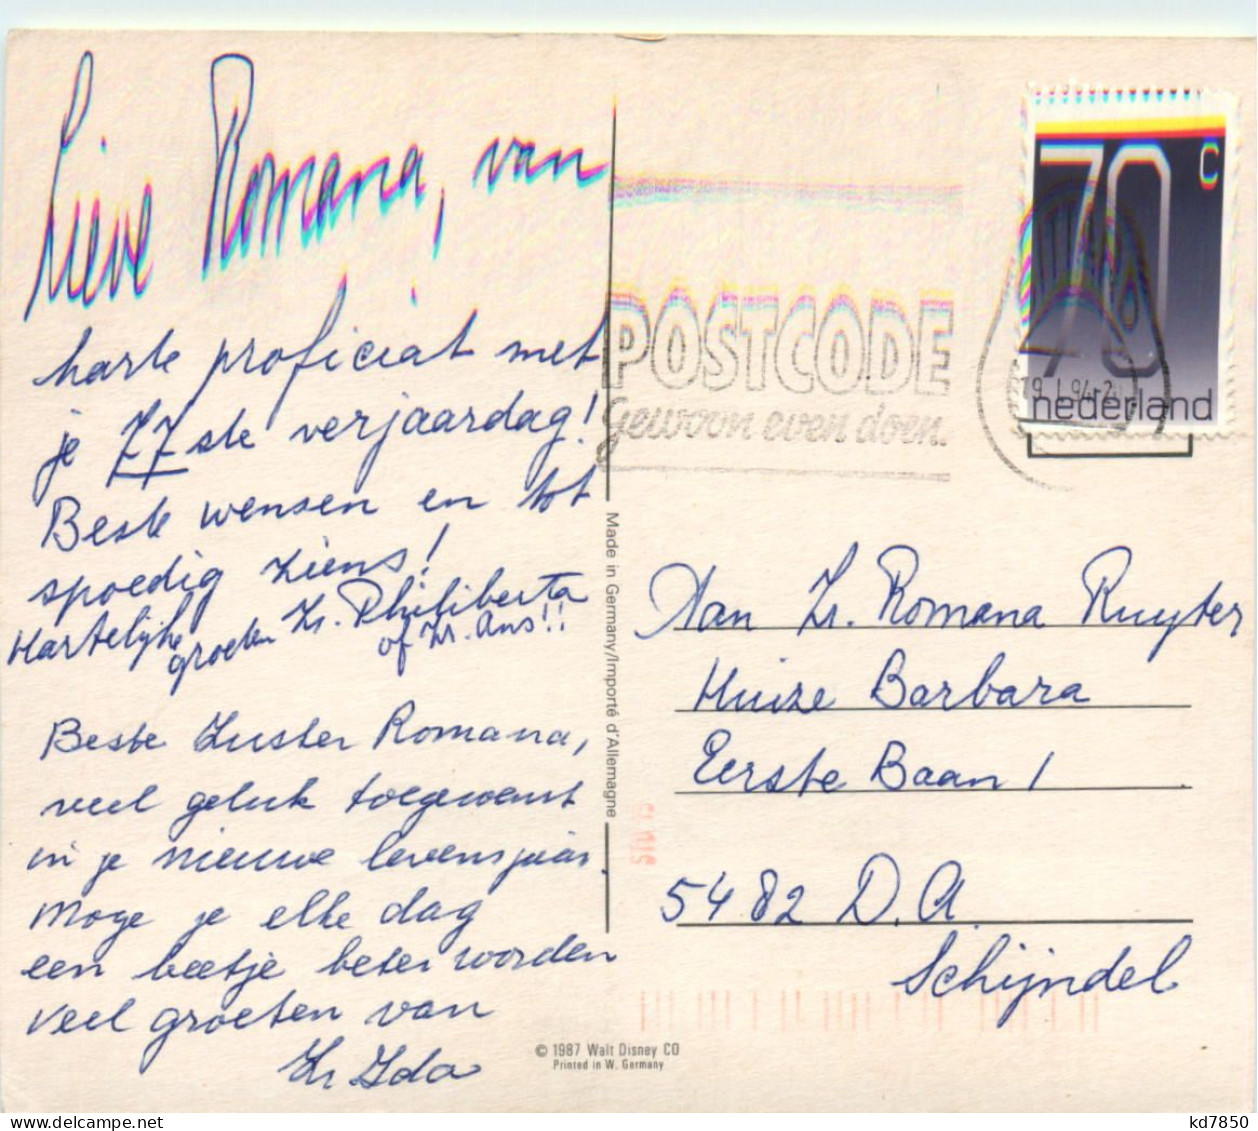 Lieve Romana, van
harte proficiat met
je 77ste verjaardag!
Beste wensen en tot
spoedig ziens!
Hartelijke
groeten Zr. Philiberta
of Zr. Ans!!
Beste Zuster Romana,
veel geluk toegewenst
in je nieuwe levensjaar.
Moge je elke dag
een beetje beter worden
veel groeten van
Zr Ida
Made in Germany/Importé d'Allemagne
© 1987 Walt Disney CO
Printed in W. Germany
POSTCODE
gewoon even doen.
70 c
nederland
19.1.94-2
Aan Zr. Romana Ruyter
Huize Barbara
Eerste Baan 1
5482 D.A
Schijndel
delcampe.net
kd7850